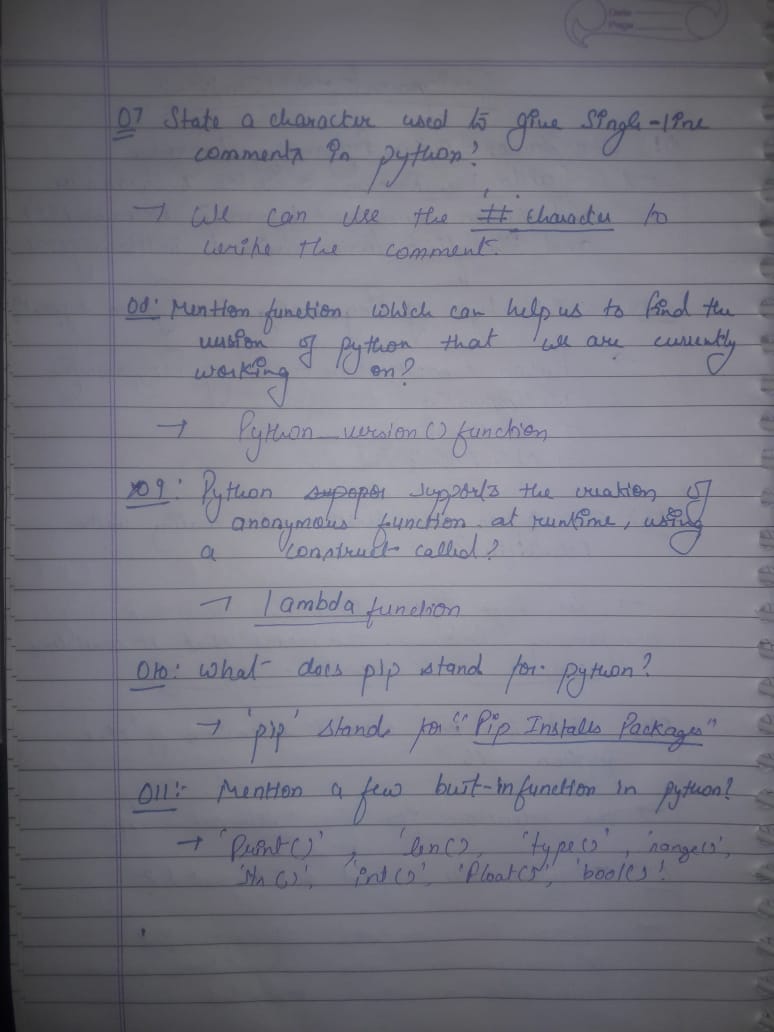 Date
Page
Q7 State a character used to give Single-line
comments in python?
→ We can use the # character to
write the comment.
Q8: Mention function which can help us to find the
version of python that we are currently
working on?
→ Python_version() function
Q9: Python supports the creation of
anonymous function at runtime, using
a construct called?
→ lambda function
Q10: What does pip stand for python?
→ 'pip' stands for "Pip Installs Packages"
Q11:- Mention a few buit-in function in python?
→ 'Print()', 'len(), 'type()', 'range()',
'str()', 'int()', 'float()', 'bool()'